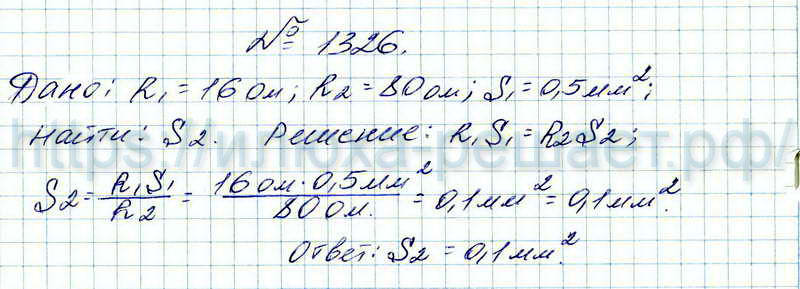 № 1326.
Дано: R₁ = 16 ом; R₂ = 80 ом; S₁ = 0,5 мм²;
Найти: S₂. Решение: R₁S₁ = R₂S₂;
S₂ = R₁S₁/R₂ = 16 ом · 0,5 мм²/80 ом. = 0,1 мм² = 0,1 мм².
Ответ: S₂ = 0,1 мм².